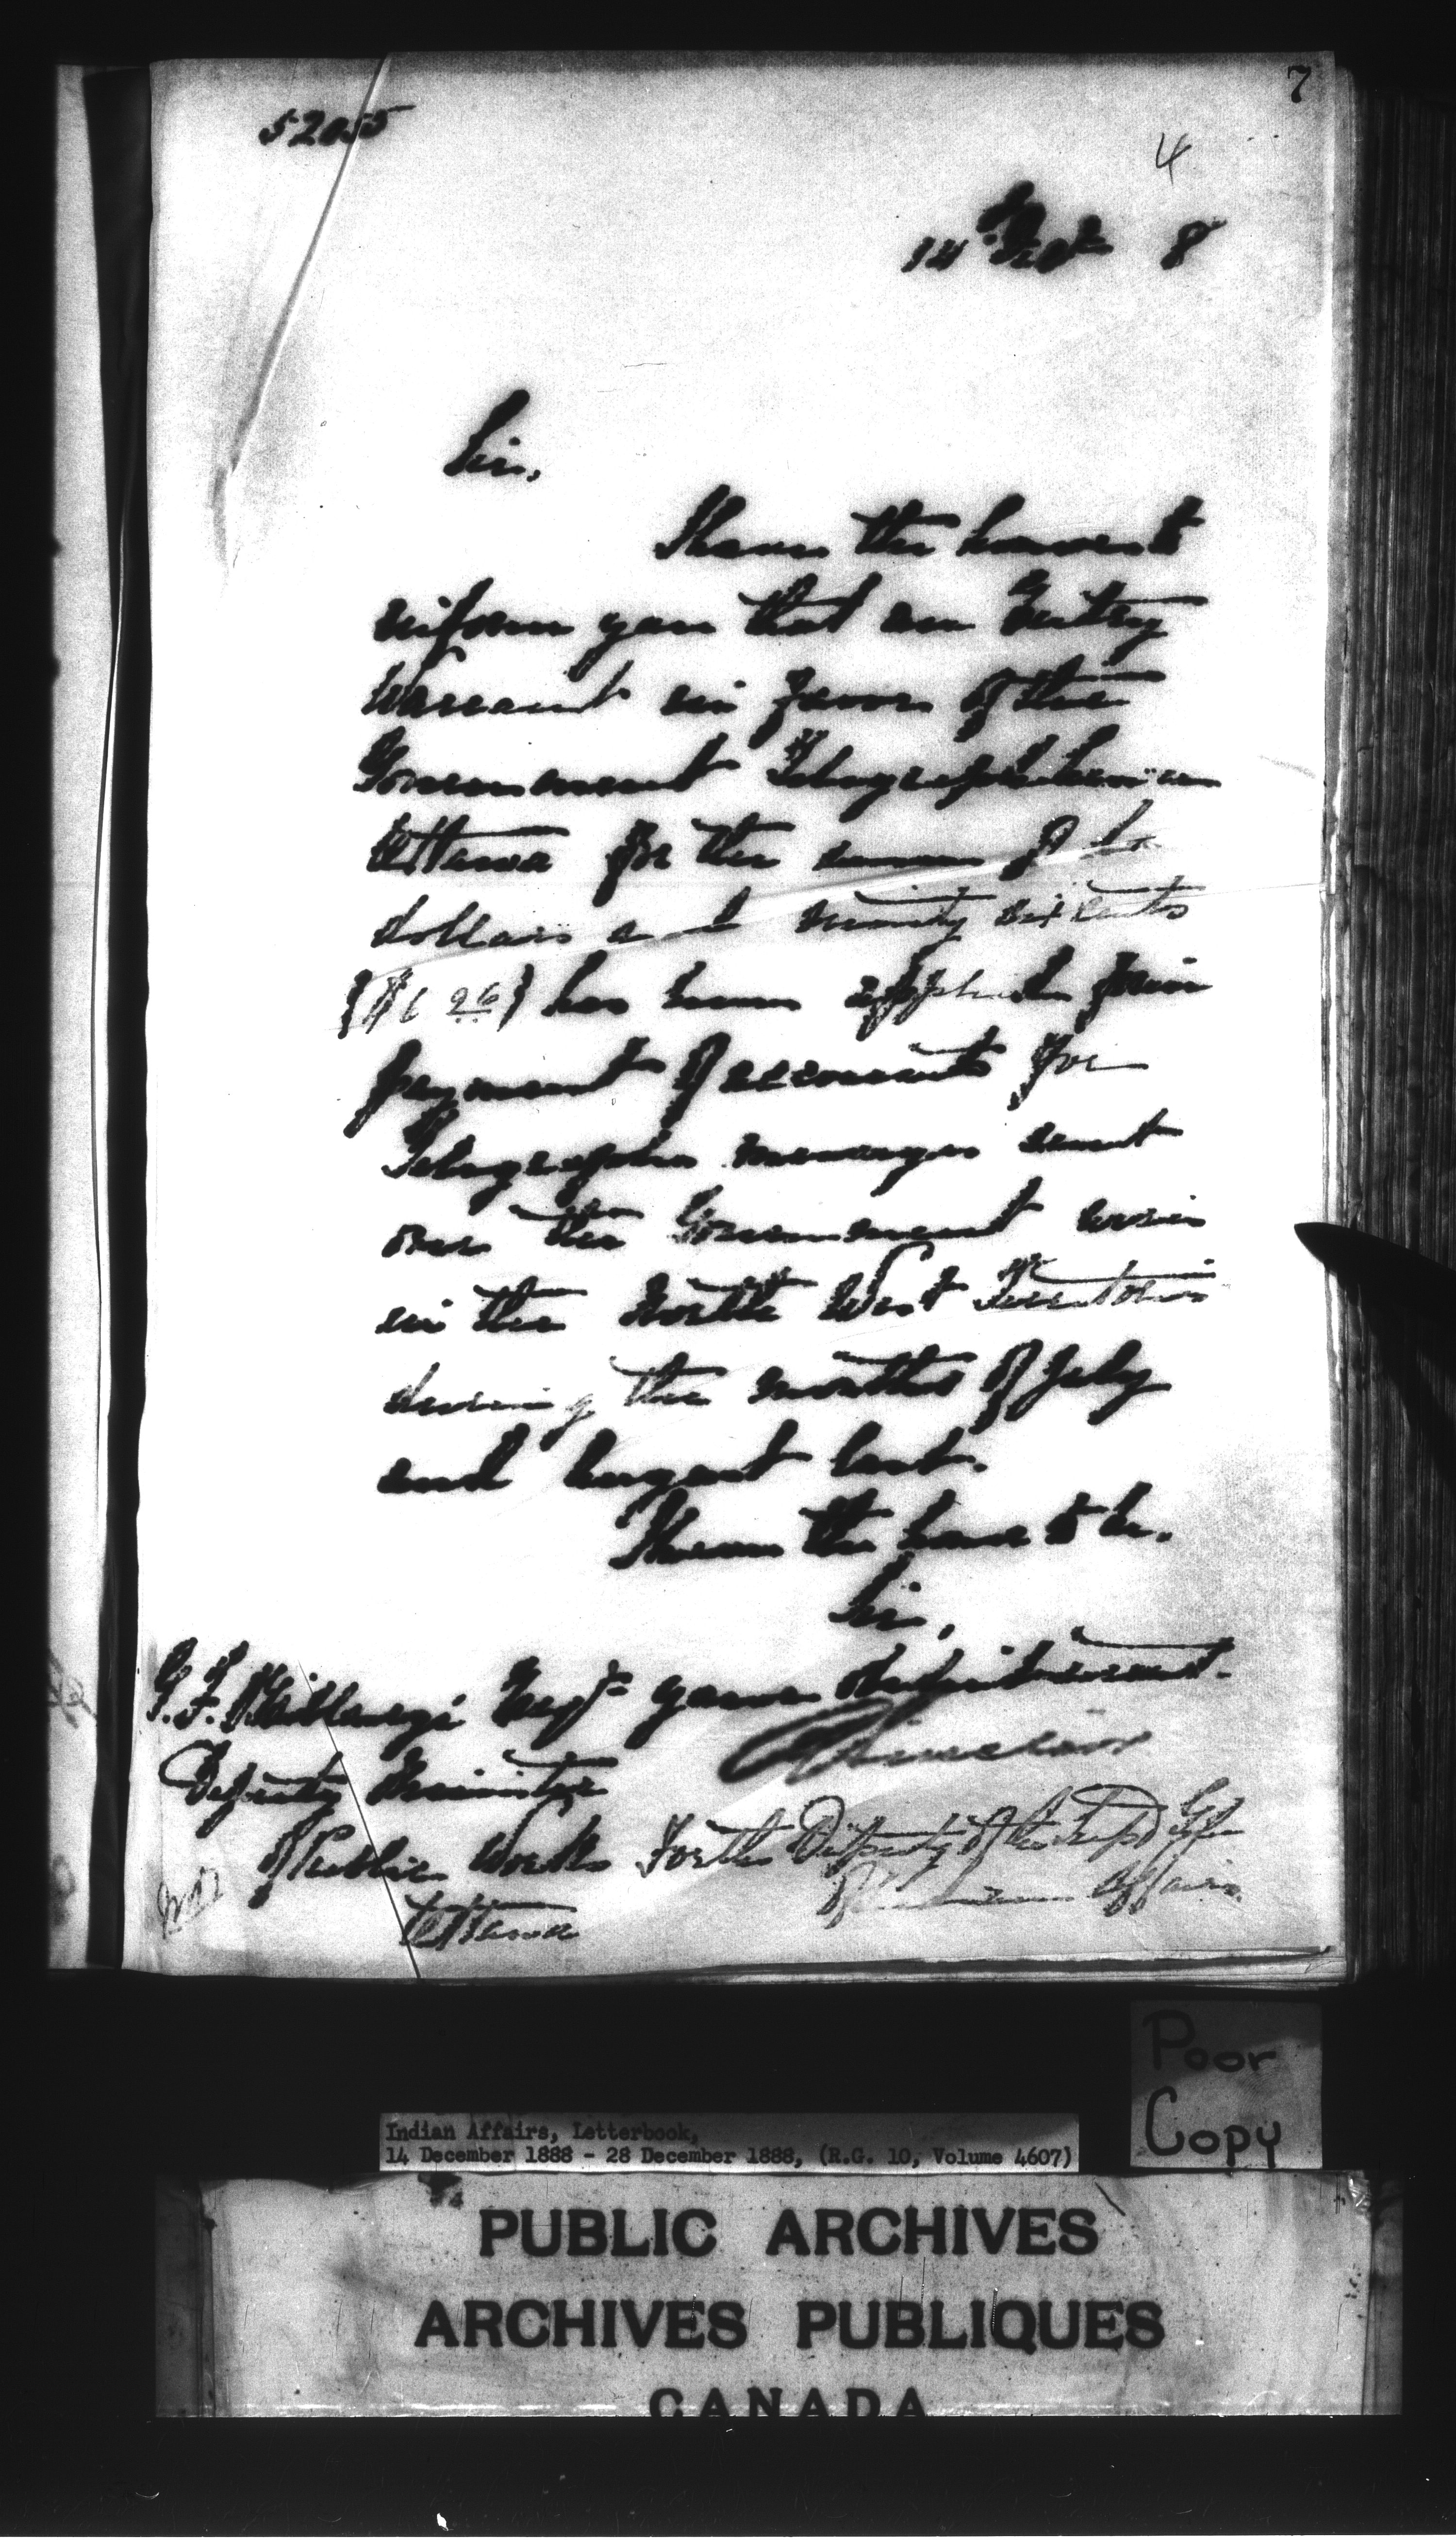 7
52055
4
14 8
Sir,
I have the honor to
inform you that an Entry
Warrant in favor of the
Government Telegraph Service
Ottawa for the sum of
dollars and cents
has been applied for in
payment of accounts for
Telegraphic messages sent
over the Government wires
in the North West Territories
during the months of July
and August last.
I have the honor to be,
Sir,
your obedient servant.
G. F. Baillairgé Esqr
R Sinclair
Deputy Minister
of Public Works
For the Deputy of the Supt Gen
of Indian Affairs
Ottawa
Poor
Copy
Indian Affairs, Letterbook,
14 December 1888 - 28 December 1888, (R.G. 10, Volume 4607)
PUBLIC ARCHIVES
ARCHIVES PUBLIQUES
CANADA